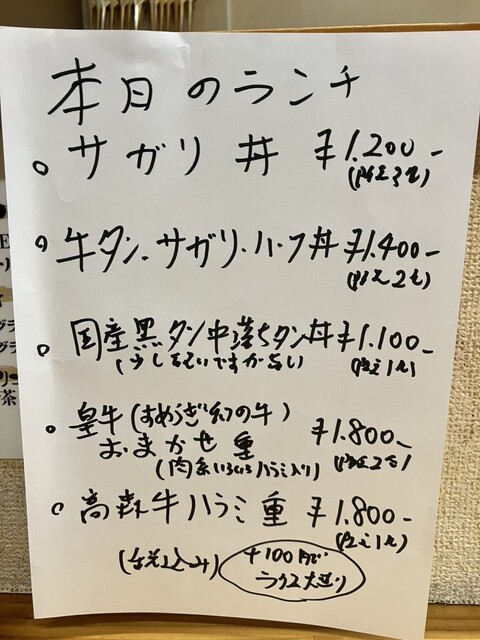 本日のランチ
サガリ丼 ¥1.200-
(限定3名)
牛タン.サガリ.ハーフ丼 ¥1.400-
(限定2名)
国産黒タン中落ちタン丼 ¥1.100-
(少し固いですが旨い) (限定1名)
皇牛(すめらぎ幻の牛)
おまかせ重 ¥1.800-
(肉系いろいろハラミ入り) (限定2名)
高森牛ハラミ重 ¥1.800-
(限定1名)
(税込み) +100円で
大盛り